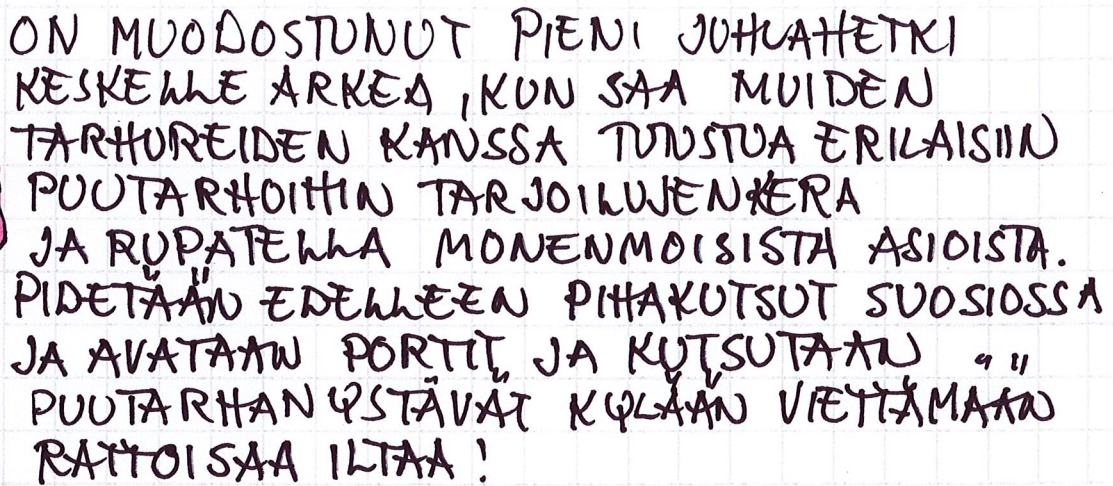 ON MUODOSTUNUT PIENI JUHLAHETKI
KESKELLE ARKEA, KUN SAA MUIDEN
TARHUREIDEN KANSSA TUTUSTUA ERILAISIIN
PUUTARHOIHIN TARJOILUJEN KERA
JA RUPATELLA MONENMOISISTA ASIOISTA.
PIDETÄÄN EDELLEEN PIHAKUTSUT SUOSIOSSA
JA AVATAAN PORTIT JA KUTSUTAAN
PUUTARHAN YSTÄVÄT KYLÄÄN VIETTÄMÄÄN
RATTOISAA ILTAA!